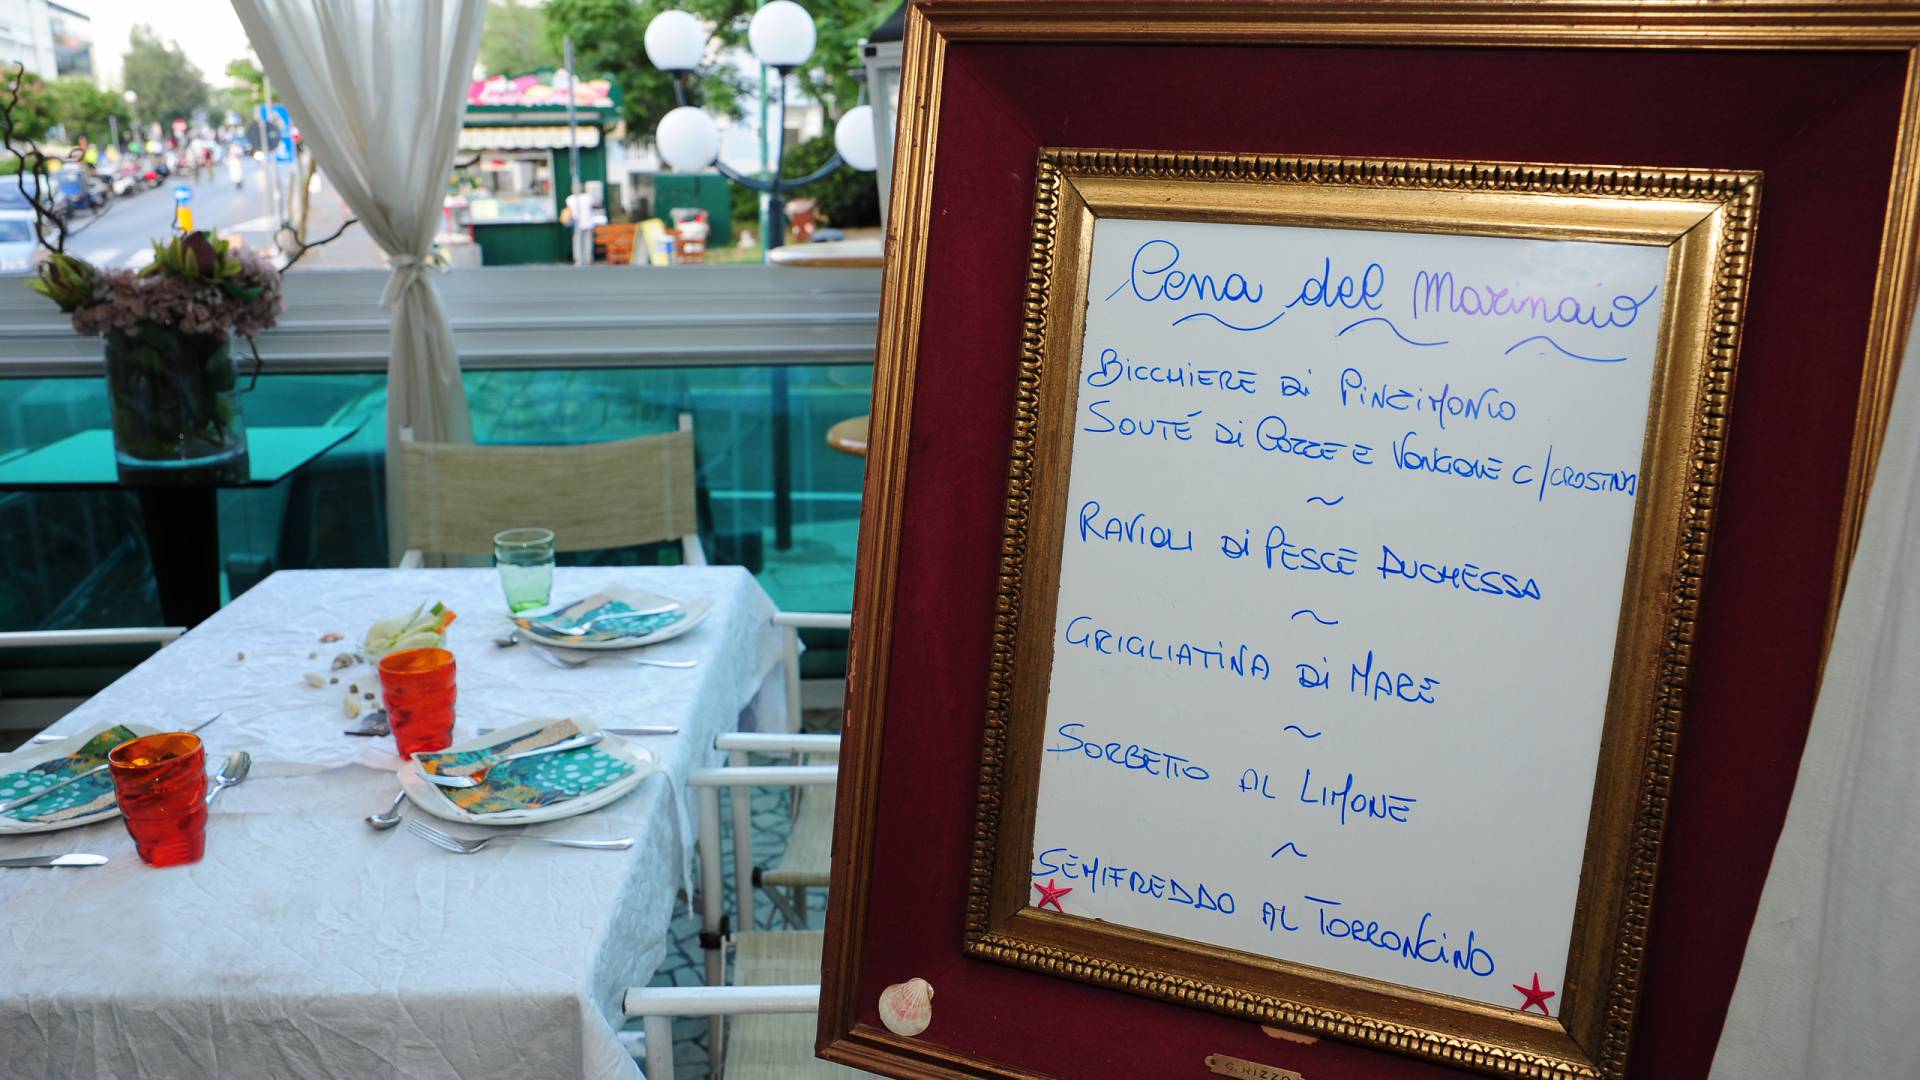 Cena del Marinaio
BICCHIERE Di PiNZiMONiO
SOUTÉ Di COZZE E VONGOLE C/CROSTINI
~
RAVIOLI Di PESCE DUCHESSA
~
GRIGLIATiNA Di MARE
~
SORBETTO AL LIMONE
~
SEMIFREDDO AL TORRONCiNO
G. RIZZO